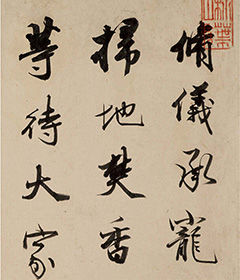 脩儀承寵
掃地焚香
等待大家